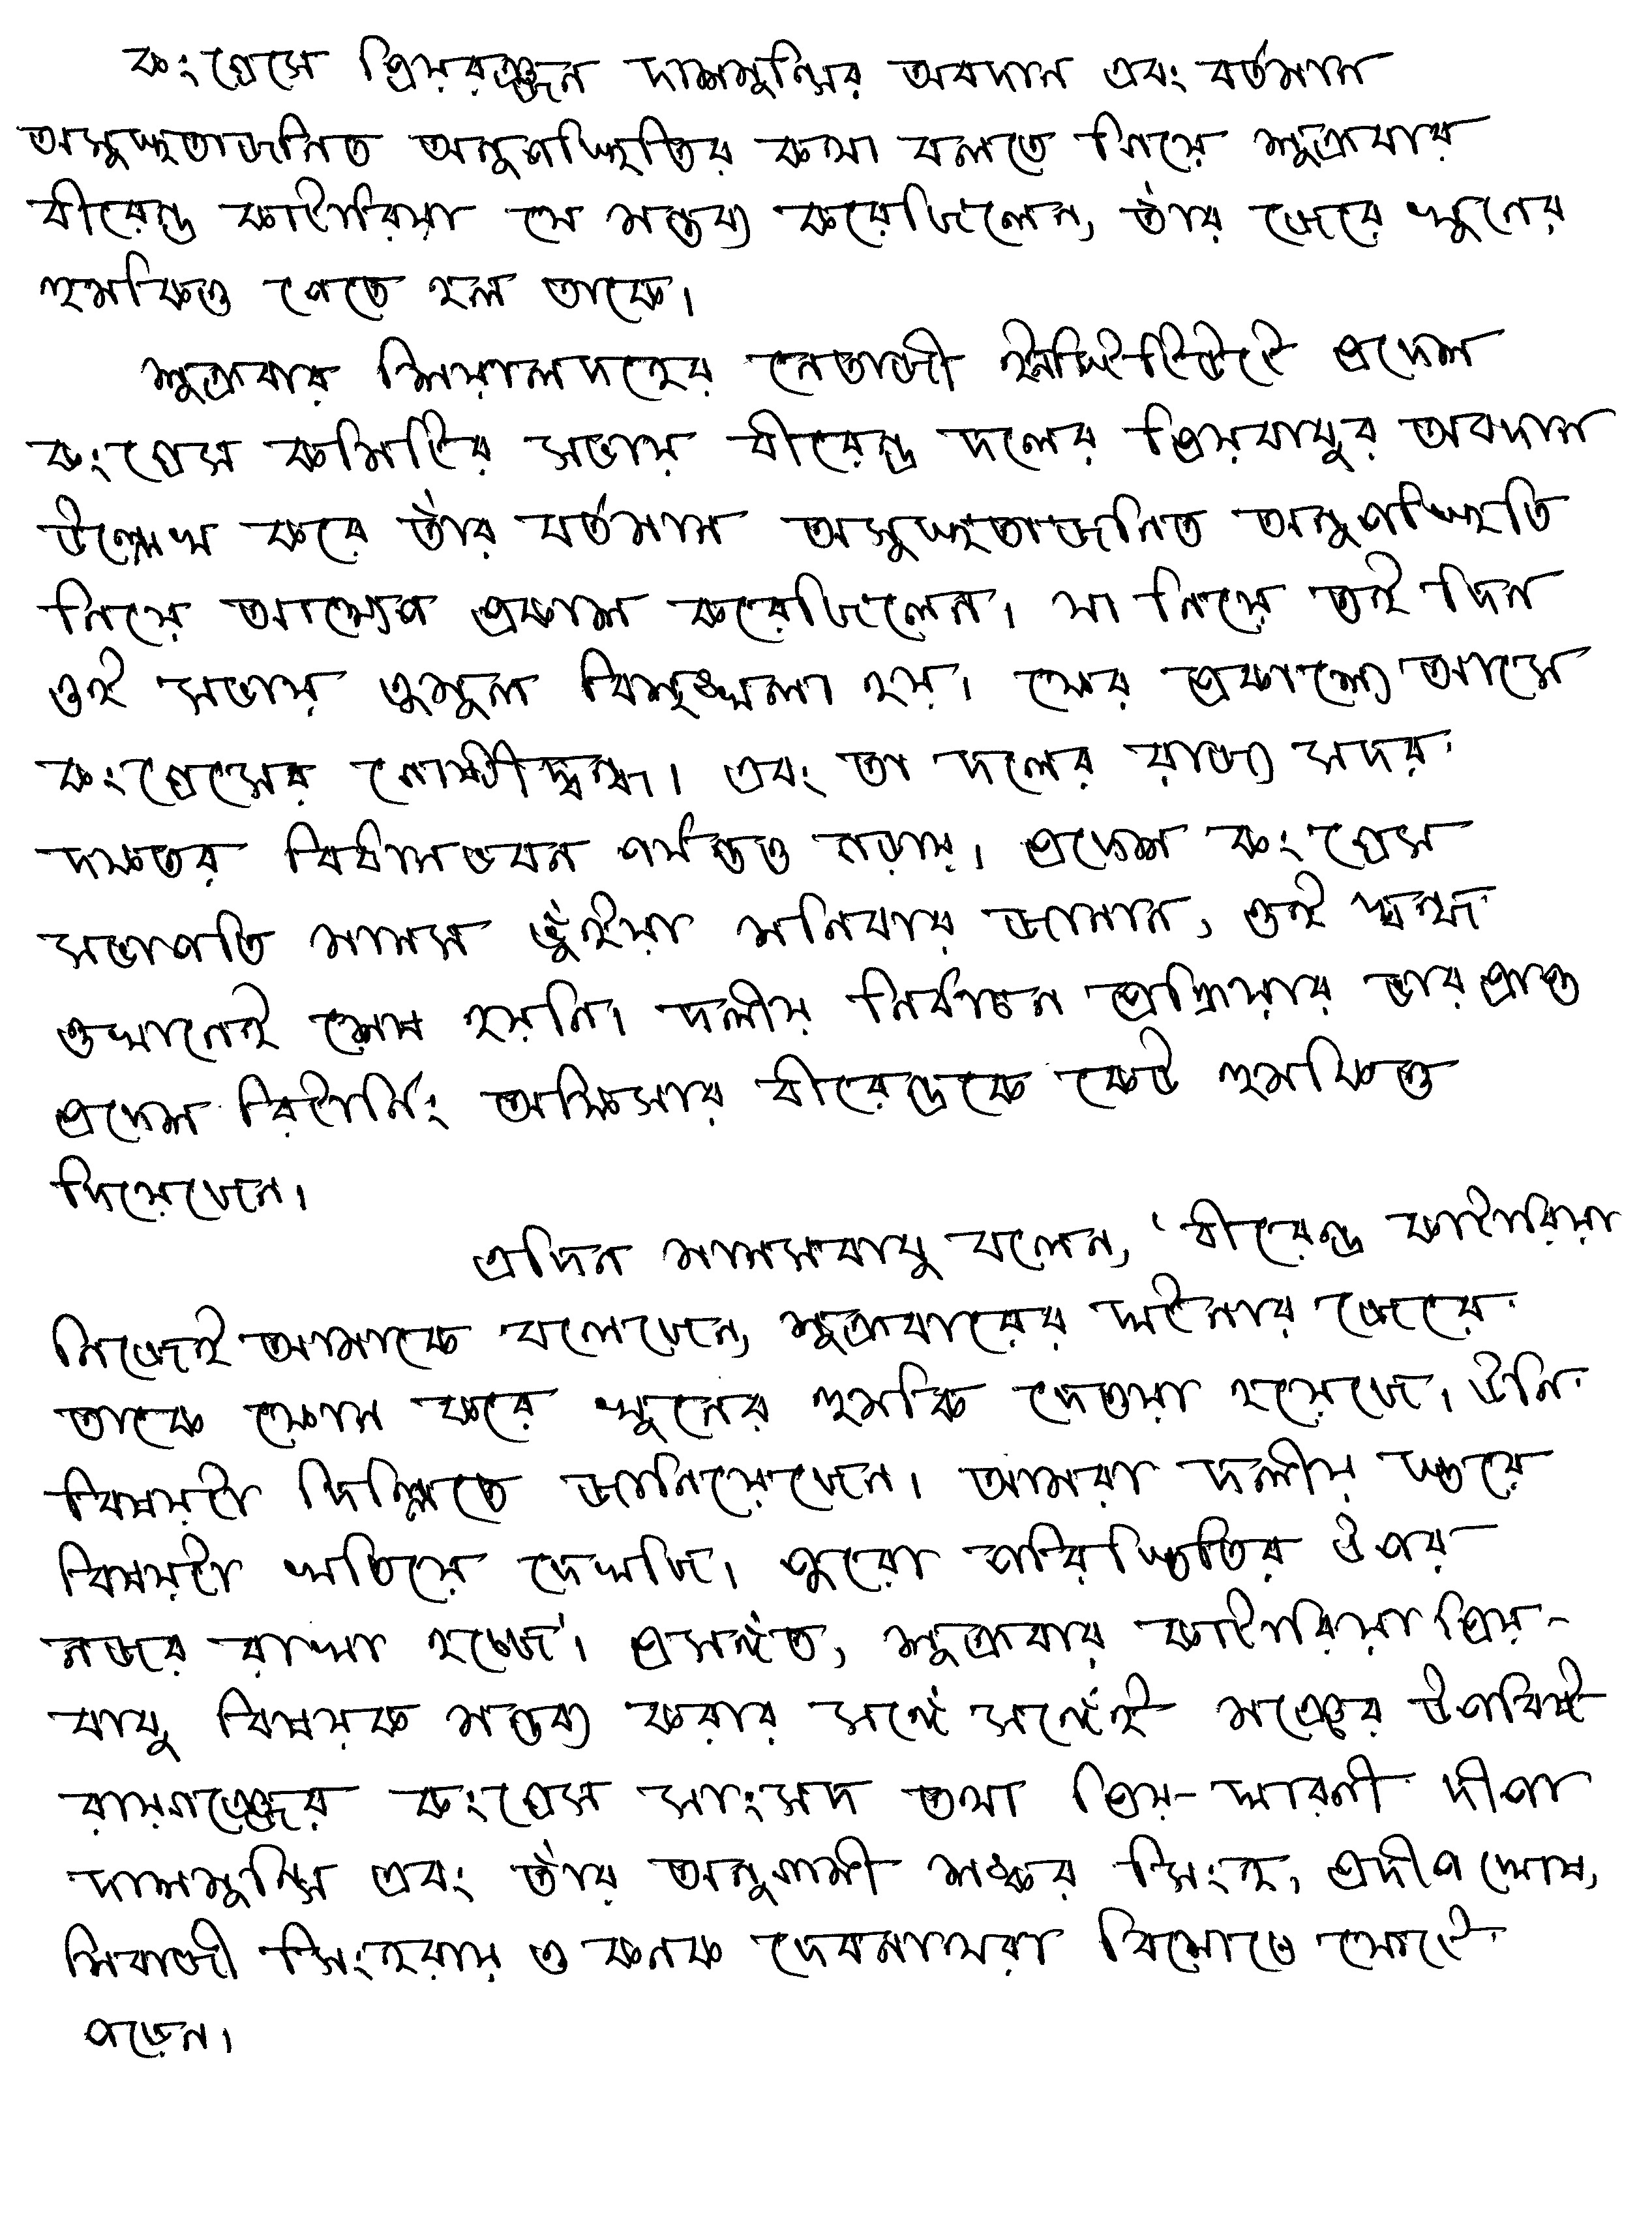 কংগ্রেসে প্রিয়রঞ্জন দাশমুন্সির অবদান এবং বর্তমান
অসুস্থতাজনিত অনুপস্থিতির কথা বলতে গিয়ে শুক্রবার
বীরেন্দ্র কাটারিয়া যে মন্তব্য করেছিলেন, তাঁর জেরে খুনের
হুমকিও পেতে হল তাকে।
শুক্রবার শিয়ালদহের নেতাজী ইন্সটিটিউটে প্রদেশ
কংগ্রেস কমিটির সভায় বীরেন্দ্র দলের প্রিয়বাবুর অবদান
উল্লেখ করে তাঁর বর্তমান অসুস্থতাজনিত অনুপস্থিতি
নিয়ে আক্ষেপ প্রকাশ করেছিলেন। যা নিয়ে ওই দিন
ওই সভায় তুমুল বিশৃঙ্খলা হয়। ফের প্রকাশ্যে আসে
কংগ্রেসের গোষ্ঠীদ্বন্দ্ব। এবং তা দলের রাজ্য সদর
দফতর বিধানভবন পর্যন্তও গড়ায়। প্রদেশ কংগ্রেস
সভাপতি মানস ভুঁইয়া শনিবার জানান, ওই দ্বন্দ্ব
ওখানেই শেষ হয়নি। দলীয় নির্বাচন প্রক্রিয়ার ভারপ্রাপ্ত
প্রদেশ রিটার্নিং অফিসার বীরেন্দ্রকে কেউ হুমকিও
দিয়েছেন।
এদিন মানসবাবু বলেন, ‘বীরেন্দ্র কাটারিয়া
নিজেই আমাকে বলেছেন, শুক্রবারের ঘটনার জেরে
তাকে ফোন করে খুনের হুমকি দেওয়া হয়েছে। উনি
বিষয়টা দিল্লিতে জানিয়েছেন। আমরা দলীয় স্তরে
বিষয়টা খতিয়ে দেখছি। পুরো পরিস্থিতির উপর
নজর রাখা হচ্ছে’। প্রসঙ্গত, শুক্রবার কাটারিয়া প্রিয়-
বাবু বিষয়ক মন্তব্য করার সঙ্গে সঙ্গেই মঞ্চের উপবিষ্ট
রায়গঞ্জের কংগ্রেস সাংসদ তথা প্রিয়-ঘরণী দীপা
দাশমুন্সি এবং তাঁর অনুগামী শঙ্কর সিংহ, প্রদীপ ঘোষ,
শিবাজী সিংহরায় ও কনক দেবনাথরা বিক্ষোভে ফেটে
পড়েন।